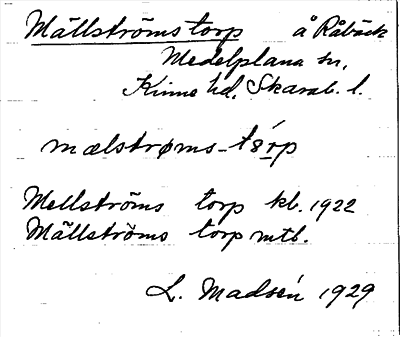 Mällströmstorp å Råbäck
Medelplana sn,
Kinne hd, Skarab. l.
mælstrøms-tȣrp
Mellströms torp kb. 1922
Mällströms torp mtb.
L. Madsén 1929